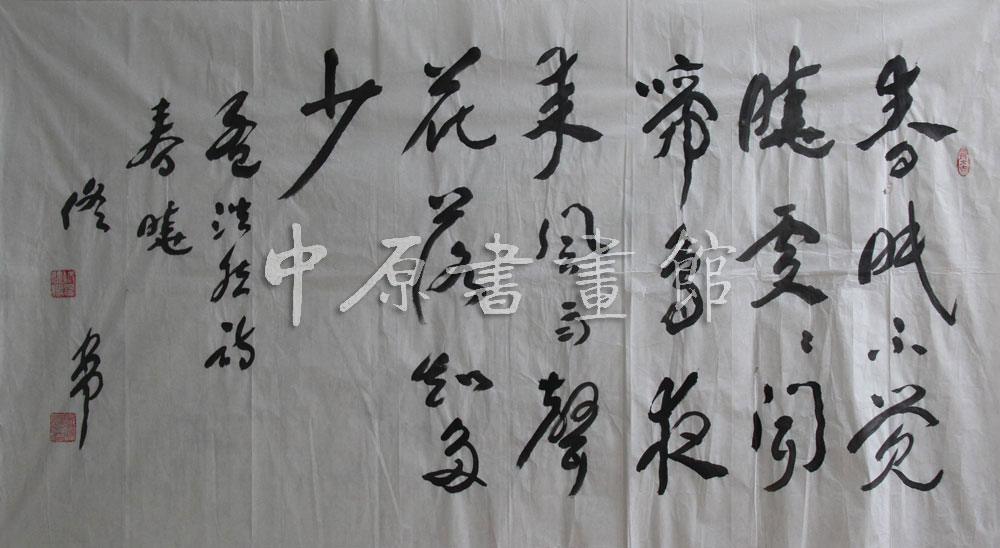 春眠不觉
晓处处闻
啼鸟夜
来风雨聲
花落知多
少
孟浩然诗
春晓
佟
中原書畫館